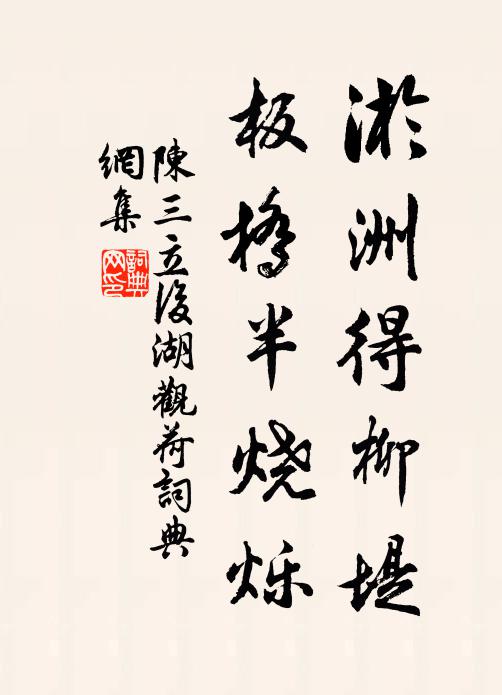 淤洲得柳堤
板橋半烧烁
陳三立後湖觀荷詞典
網集
詞典网印